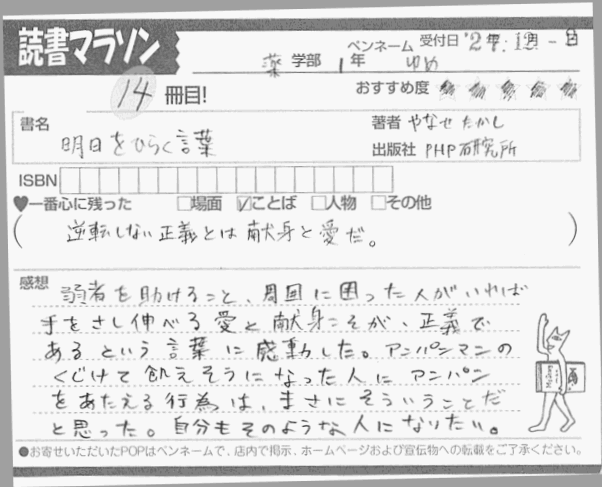 読書マラソン
ペンネーム 受付日 '24年.12月 - 日
薬 学部 1年 ゆめ
14 冊目!
おすすめ度
書名 明日をひらく言葉
著者 やなせたかし
出版社 PHP研究所
ISBN
♥一番心に残った □場面 ☑ことば □人物 □その他
( 逆転しない正義とは献身と愛だ。 )
感想 弱者を助けること、周囲に困った人がいれば
手をさし伸べる愛と献身こそが、正義で
あるという言葉に感動した。アンパンマンの
くじけて飢えそうになった人にアンパン
をあたえる行為は、まさにそういうことだ
と思った。自分もそのような人になりたい。
●お寄せいただいたPOPはペンネームで、店内で掲示、ホームページおよび宣伝物への転載をご了承ください。